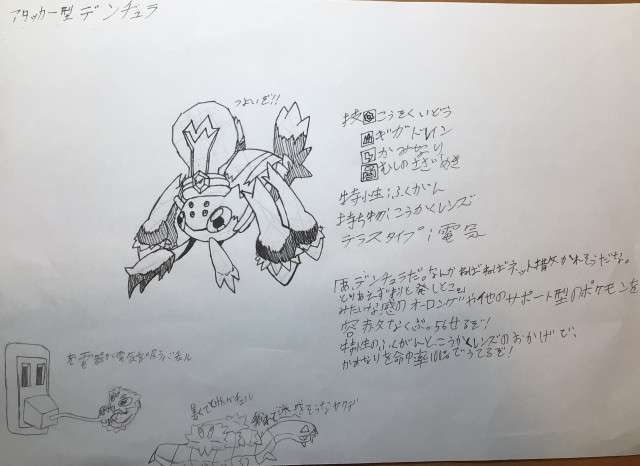 アタッカー型 デンチュラ
つよいぞ!!
技 こうそくいどう
ギガドレイン
かみなり
むしのさざめき
特性:ふくがん
持ち物:こうかくレンズ
テラスタイプ:電気
「あ、デンチュラだ。なんかねばねばネット撒かれそうだな。
とりあえず
みたいな感のオーロンゲや他のサポート型のポケモンを
容赦なくぶっ56せるぞ!
特性のふくがんと、こうかくレンズのおかげで、
かみなりを命中率100%でうてるぞ!